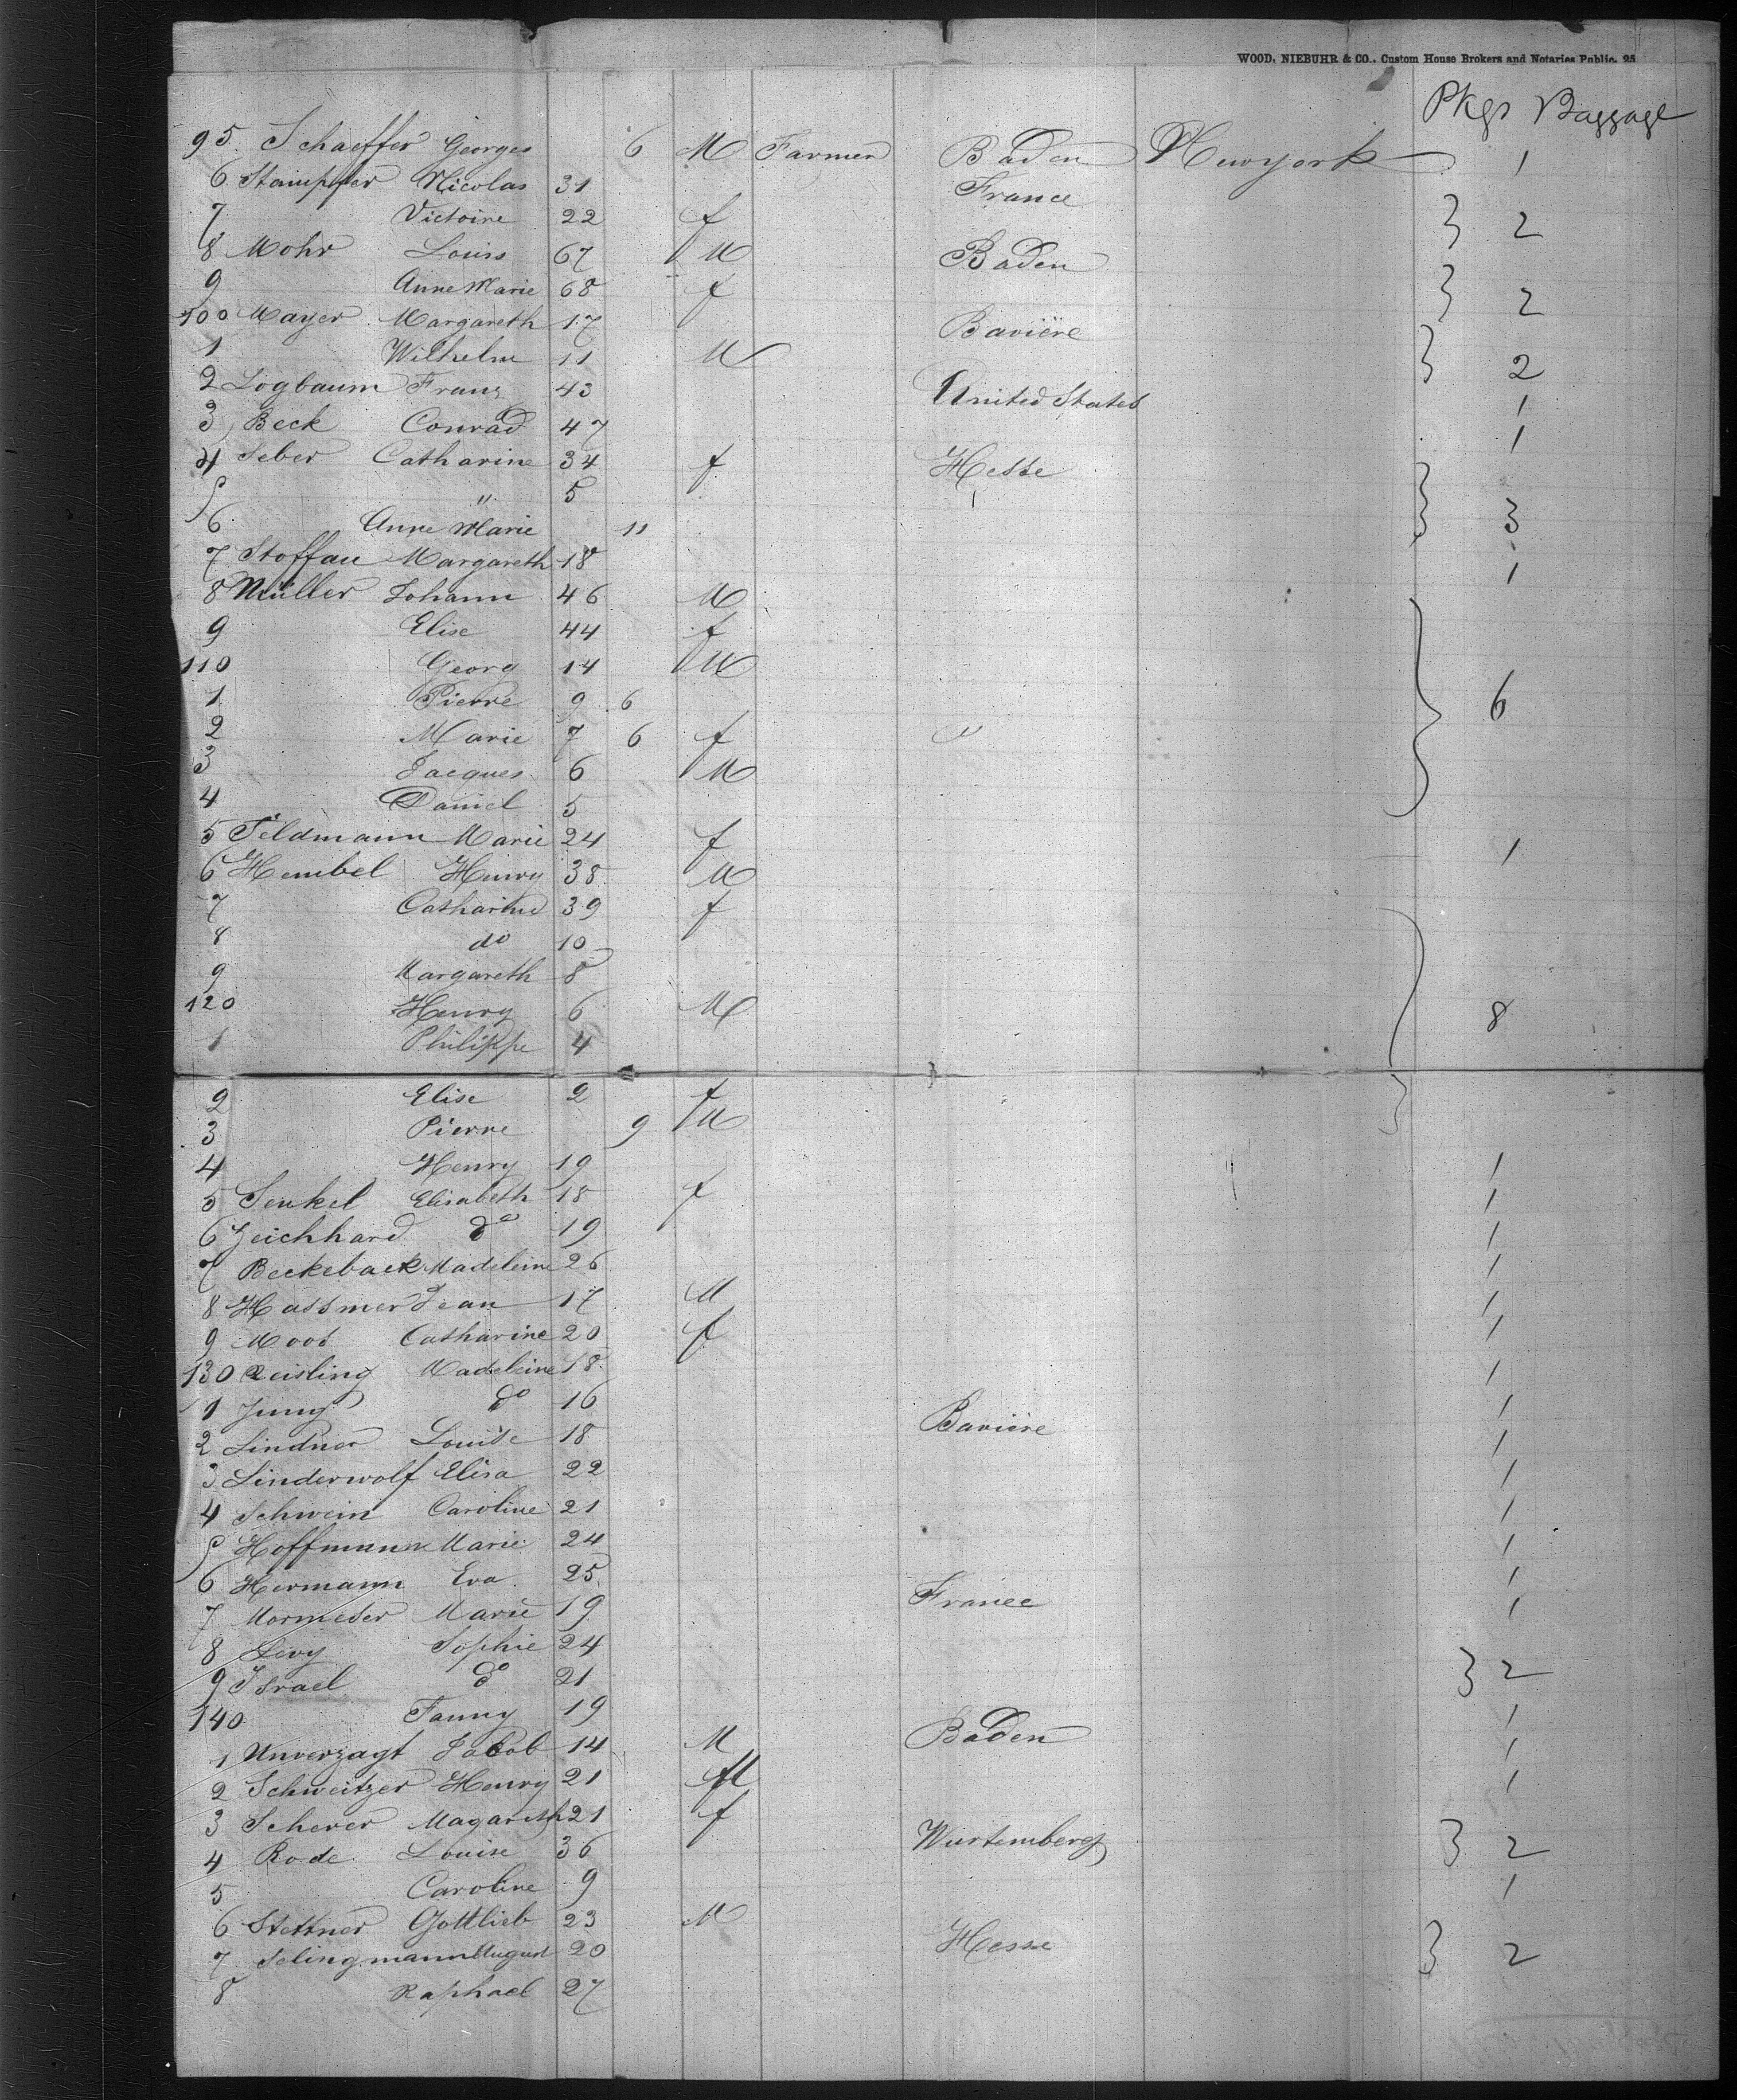 WOOD, NIEBUHR & CO., Custom House Brokers and Notaries Public. 25
Pkgs Baggage
95 Schaeffer Georges 6 M Farmer Baden Newyork 1
6 Stampfer Nicolas 31 France
7 Victoire 22 f } 2
8 Mohr Louis 67 M Baden
9 Anne Marie 68 f } 2
100 Mayer Margareth 17 Bavière
1 Wilhelm 11 M } 2
2 Logbaum Franz 43 United States 1
3 Beck Conrad 47 1
4 Seber Catharine 34 f Hesse
5 " 5 } 3
6 Anne Marie 11
7 Stoffau Margareth 18 1
8 Müller Johann 46 M
9 Elise 44 f
110 Georg 14 M
1 Pierre 9 6 } 6
2 Marie 7 6 f "
3 Jacques 6 M
4 Daniel 5
5 Feldmann Marie 24 f 1
6 Hembel Henry 38 M
7 Catharine 39 f
8 do 10
9 Margareth 8
120 Henry 6 M } 8
1 Philippe 4
2 Elise 2 f
3 Pierre 9 M
4 Henry 19 1
5 Senkel Elisabeth 18 f 1
6 Zeichhard do 19 1
7 Beckeback Madeleine 26 1
8 Hassmer Jean 17 M 1
9 Moos Catharine 20 f 1
130 Reisling Madeleine 18 1
1 Jung do 16 Bavière 1
2 Lindner Louise 18 1
3 Linderwolf Elisa 22 1
4 Schwein Caroline 21 1
5 Hoffmann Marie 24 1
6 Hermann Eva 25 1
7 Mormeser Marie 19 France 1
8 Levy Sophie 24
9 Israel do 21 } 2
140 Fanny 19 1
1 Unverzagt Jacob 14 M Baden 1
2 Schweitzer Henry 21 M 1
3 Scherer Magareth 21 f
4 Rode Louise 36 Wurtemberg } 2
5 Caroline 9 1
6 Stettner Gottlieb 23 M
7 Selingmann August 20 Hesse } 2
8 Raphael 27